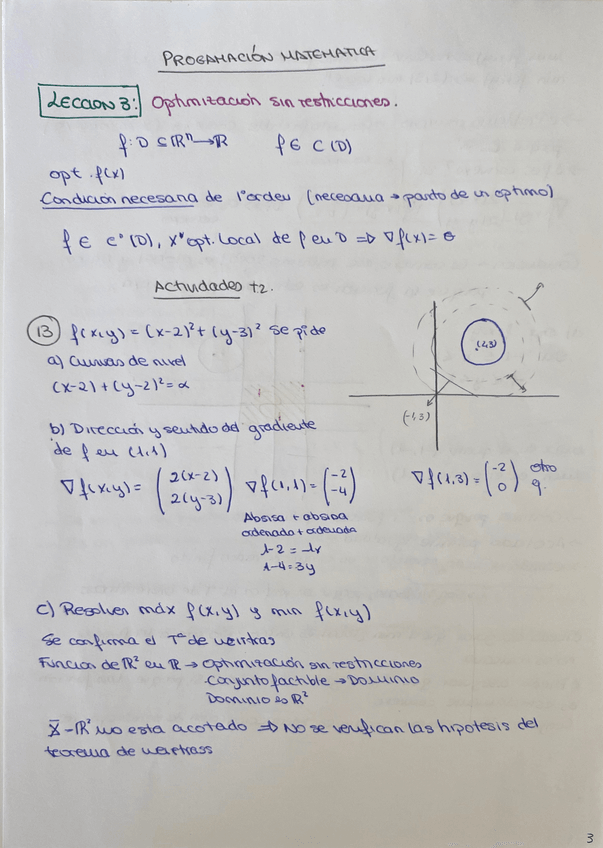 PROGAMACIÓN MATEMATICA
LECCION 3: Optimización sin restricciones.
f: D ⊆ ℝⁿ → ℝ f ∈ C (D)
opt. f(x)
Condición necesaria de 1º orden (necesaria → parto de un optimo)
f ∈ C¹ (D), x* opt. Local de f en D ⇒ ∇f(x) = θ
Actividades t2.
13 f(x,y) = (x-2)² + (y-3)² se pide
a) Curvas de nivel
(x-2) + (y-2)² = α
(2,3)
(-1,3)
b) Dirección y sentido del gradiente
de f en (1,1)
∇f(x,y) = (2(x-2) 2(y-3)) ∇f(1,1) = (-2 -4) ∇f(1,3) = (-2 0) otro
Absisa + absisa
ordenada + ordenada
1-2 = -1x
1-4 = 3y
c) Resolver máx f(x,y) y min f(x,y)
Se confirma el Tª de weistras
Función de ℝ² en ℝ → Optimización sin restricciones
Conjunto factible → Dominio
Dominio es ℝ²
X̄ - ℝ² no esta acotado ⇒ No se verifican las hipotesis del
teorema de weirtrass
3